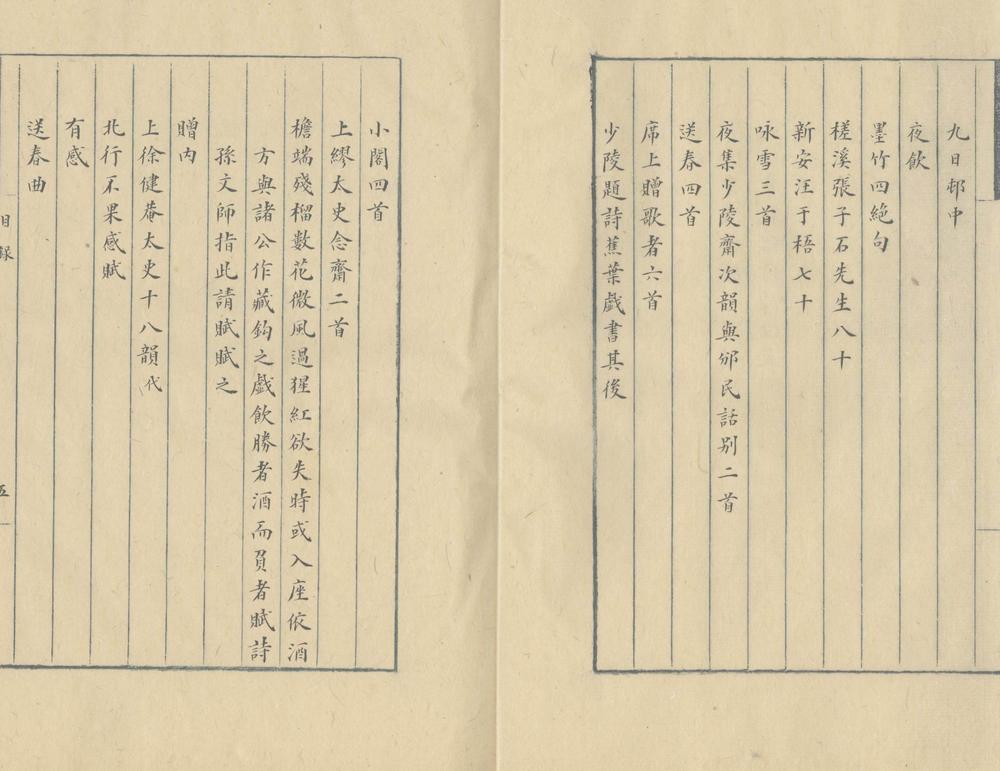 九日邨中
夜飲
墨竹四絕句
槎溪張子石先生八十
新安汪于梧七十
咏雪三首
夜集少陵齋次韻與邠民話别二首
送春四首
席上贈歌者六首
少陵題詩蕉葉戲書其後
小閣四首
上繆太史念齋二首
檐端殘榴數花微風過猩紅欲失時或入座依酒
方與諸公作藏鈎之戲飲勝者酒而負者賦詩
孫文師指此請賦賦之
贈内
上徐健菴太史十八韻代
北行不果感賦
有感
送春曲
目録
五